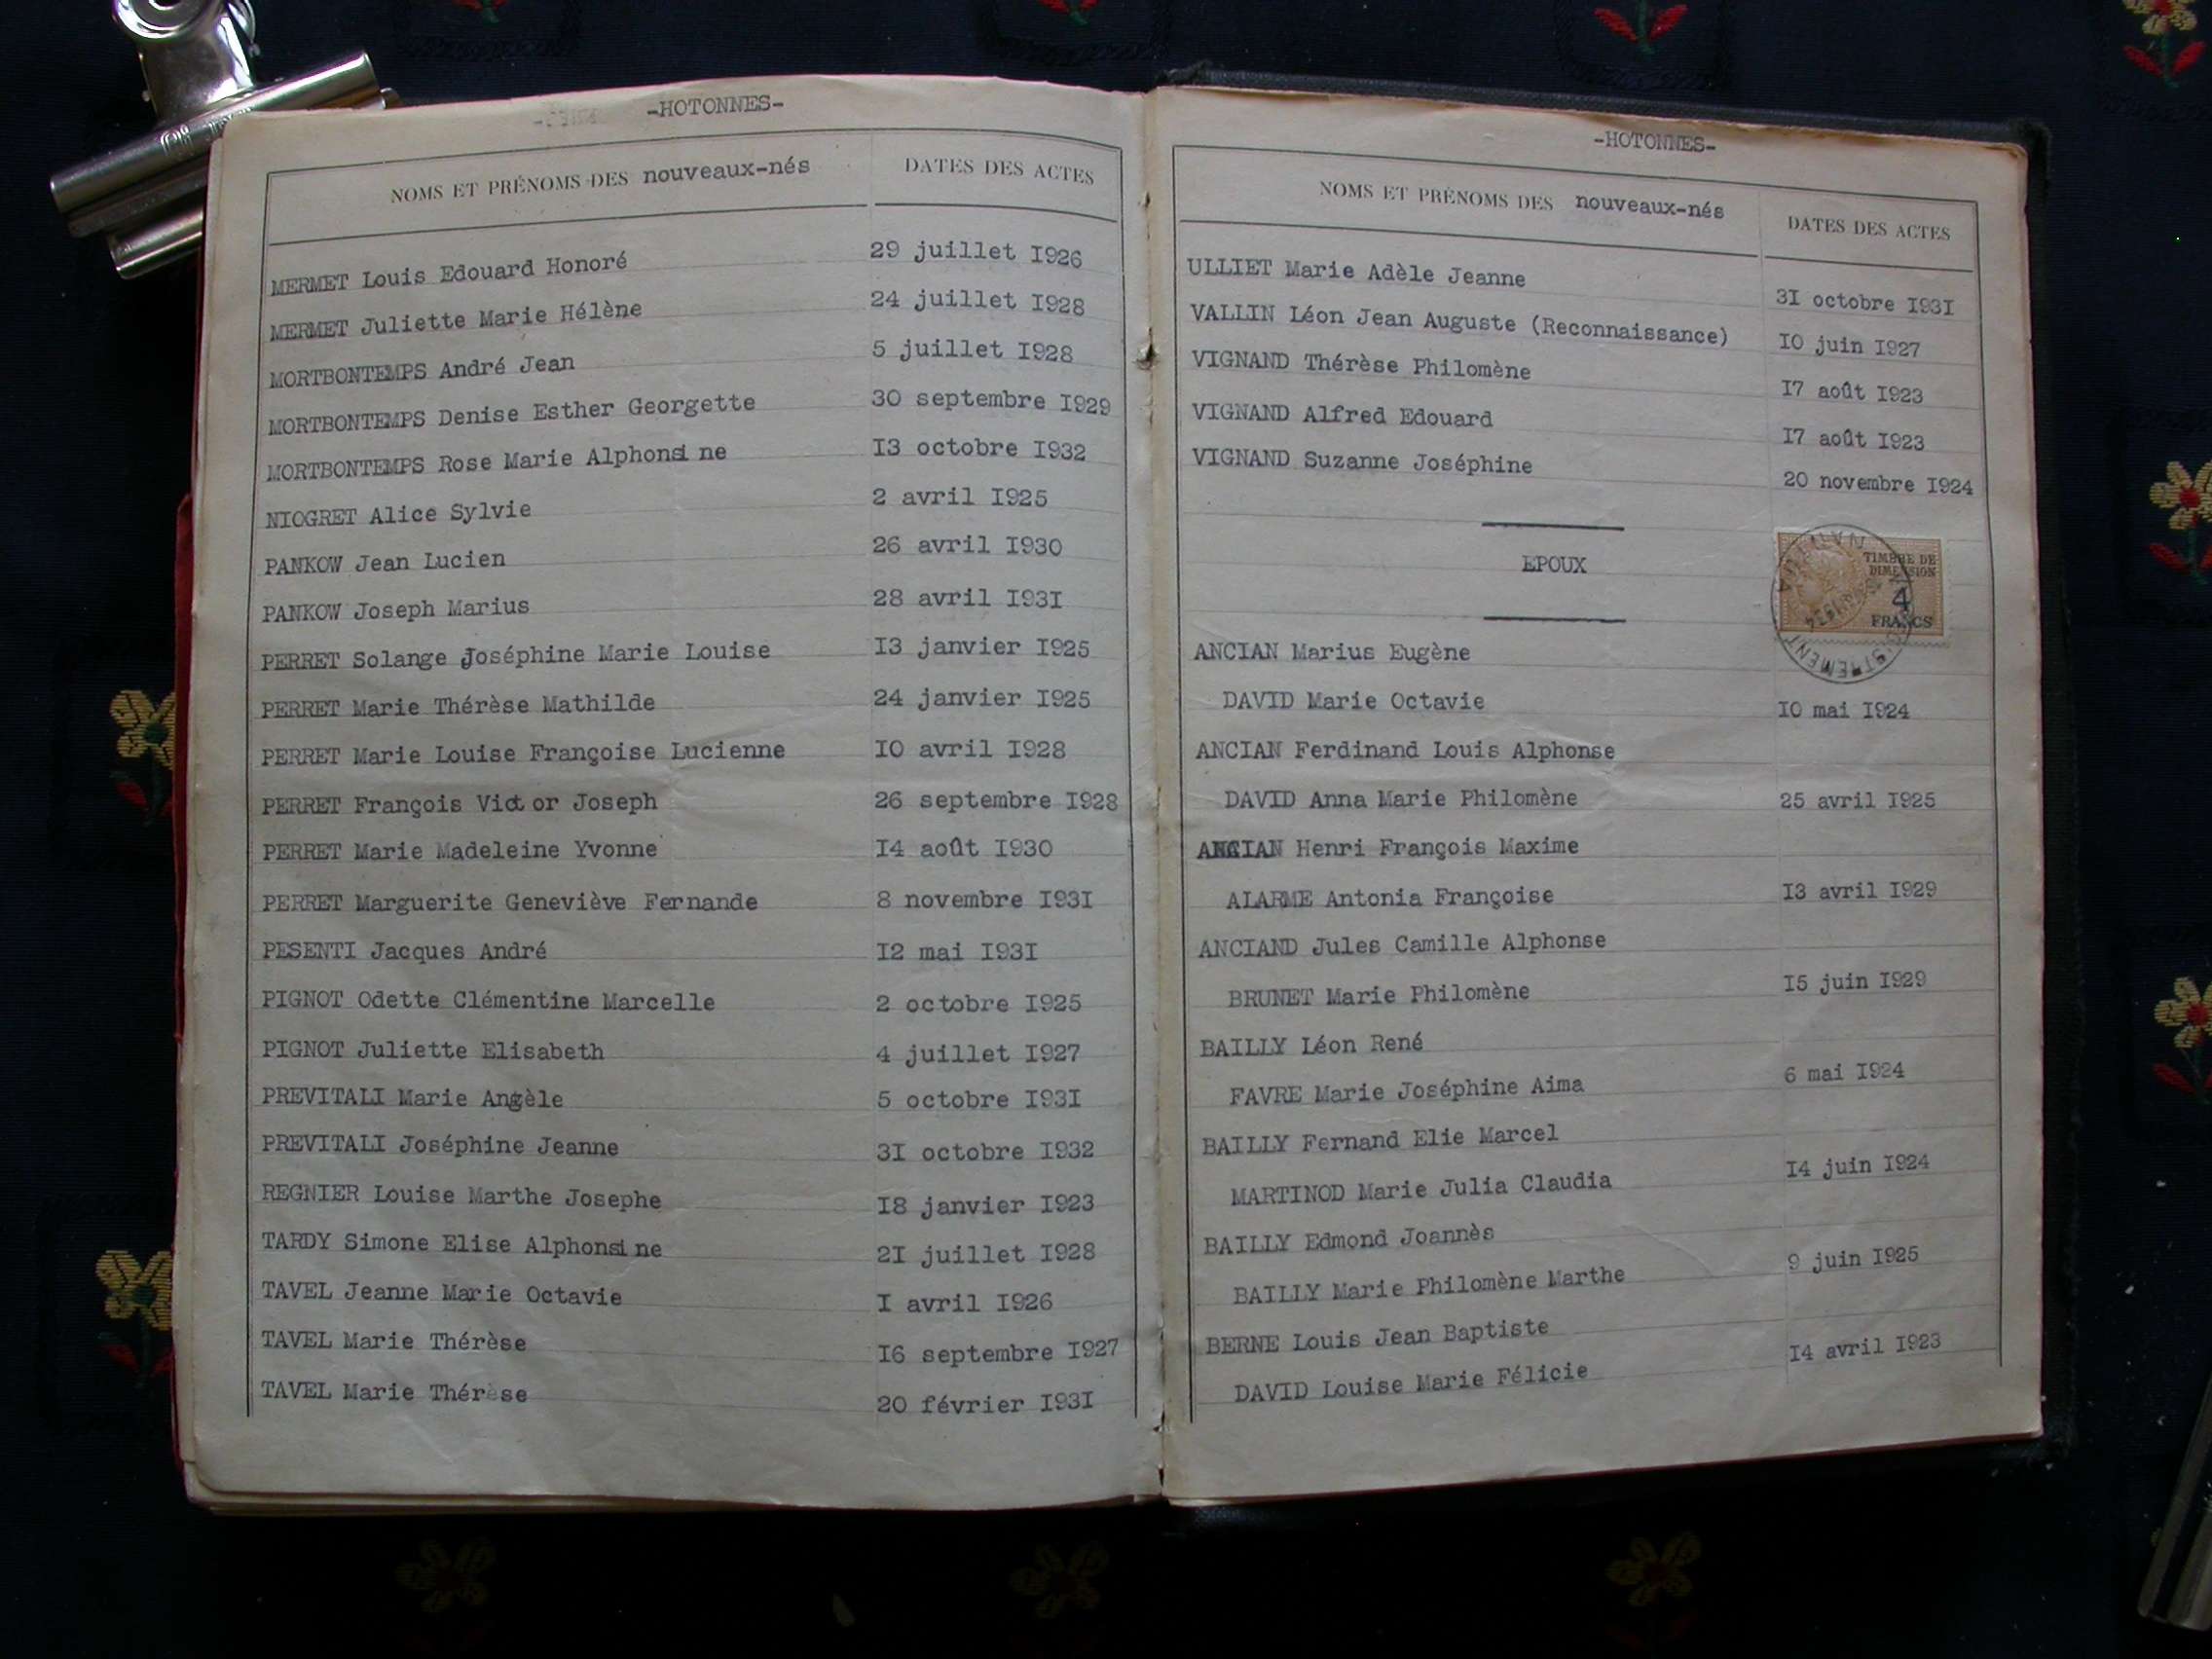 -HOTONNES-
NOMS ET PRÉNOMS DES nouveaux-nés DATES DES ACTES
MERMET Louis Edouard Honoré 29 juillet I926
MERMET Juliette Marie Hélène 24 juillet I928
MORTBONTEMPS André Jean 5 juillet I928
MORTBONTEMPS Denise Esther Georgette 30 septembre I929
MORTBONTEMPS Rose Marie Alphonsine I3 octobre I932
NIOGRET Alice Sylvie 2 avril I925
PANKOW Jean Lucien 26 avril I930
PANKOW Joseph Marius 28 avril I93I
PERRET Solange Joséphine Marie Louise I3 janvier I925
PERRET Marie Thérèse Mathilde 24 janvier I925
PERRET Marie Louise Françoise Lucienne I0 avril I928
PERRET François Victor Joseph 26 septembre I928
PERRET Marie Madeleine Yvonne I4 août I930
PERRET Marguerite Geneviève Fernande 8 novembre I93I
PESENTI Jacques André I2 mai I93I
PIGNOT Odette Clémentine Marcelle 2 octobre I925
PIGNOT Juliette Elisabeth 4 juillet I927
PREVITALI Marie Angèle 5 octobre I93I
PREVITALI Joséphine Jeanne 3I octobre I932
REGNIER Louise Marthe Josephe I8 janvier I923
TARDY Simone Elise Alphonsine 2I juillet I928
TAVEL Jeanne Marie Octavie I avril I926
TAVEL Marie Thérèse I6 septembre I927
TAVEL Marie Thérèse 20 février I93I
-HOTONNES-
NOMS ET PRÉNOMS DES nouveaux-nés DATES DES ACTES
ULLIET Marie Adèle Jeanne 3I octobre I93I
VALLIN Léon Jean Auguste (Reconnaissance) I0 juin I927
VIGNAND Thérèse Philomène I7 août I923
VIGNAND Alfred Edouard I7 août I923
VIGNAND Suzanne Joséphine 20 novembre I924
EPOUX
TIMBRE DE
DIMENSION
4
FRANCS
ANCIAN Marius Eugène
DAVID Marie Octavie I0 mai I924
ANCIAN Ferdinand Louis Alphonse
DAVID Anna Marie Philomène 25 avril I925
ANCIAN Henri François Maxime
ALARME Antonia Françoise I3 avril I929
ANCIAND Jules Camille Alphonse
BRUNET Marie Philomène I5 juin I929
BAILLY Léon René
FAVRE Marie Joséphine Aima 6 mai I924
BAILLY Fernand Elie Marcel
MARTINOD Marie Julia Claudia I4 juin I924
BAILLY Edmond Joannès
BAILLY Marie Philomène Marthe 9 juin I925
BERNE Louis Jean Baptiste
DAVID Louise Marie Félicie I4 avril I923